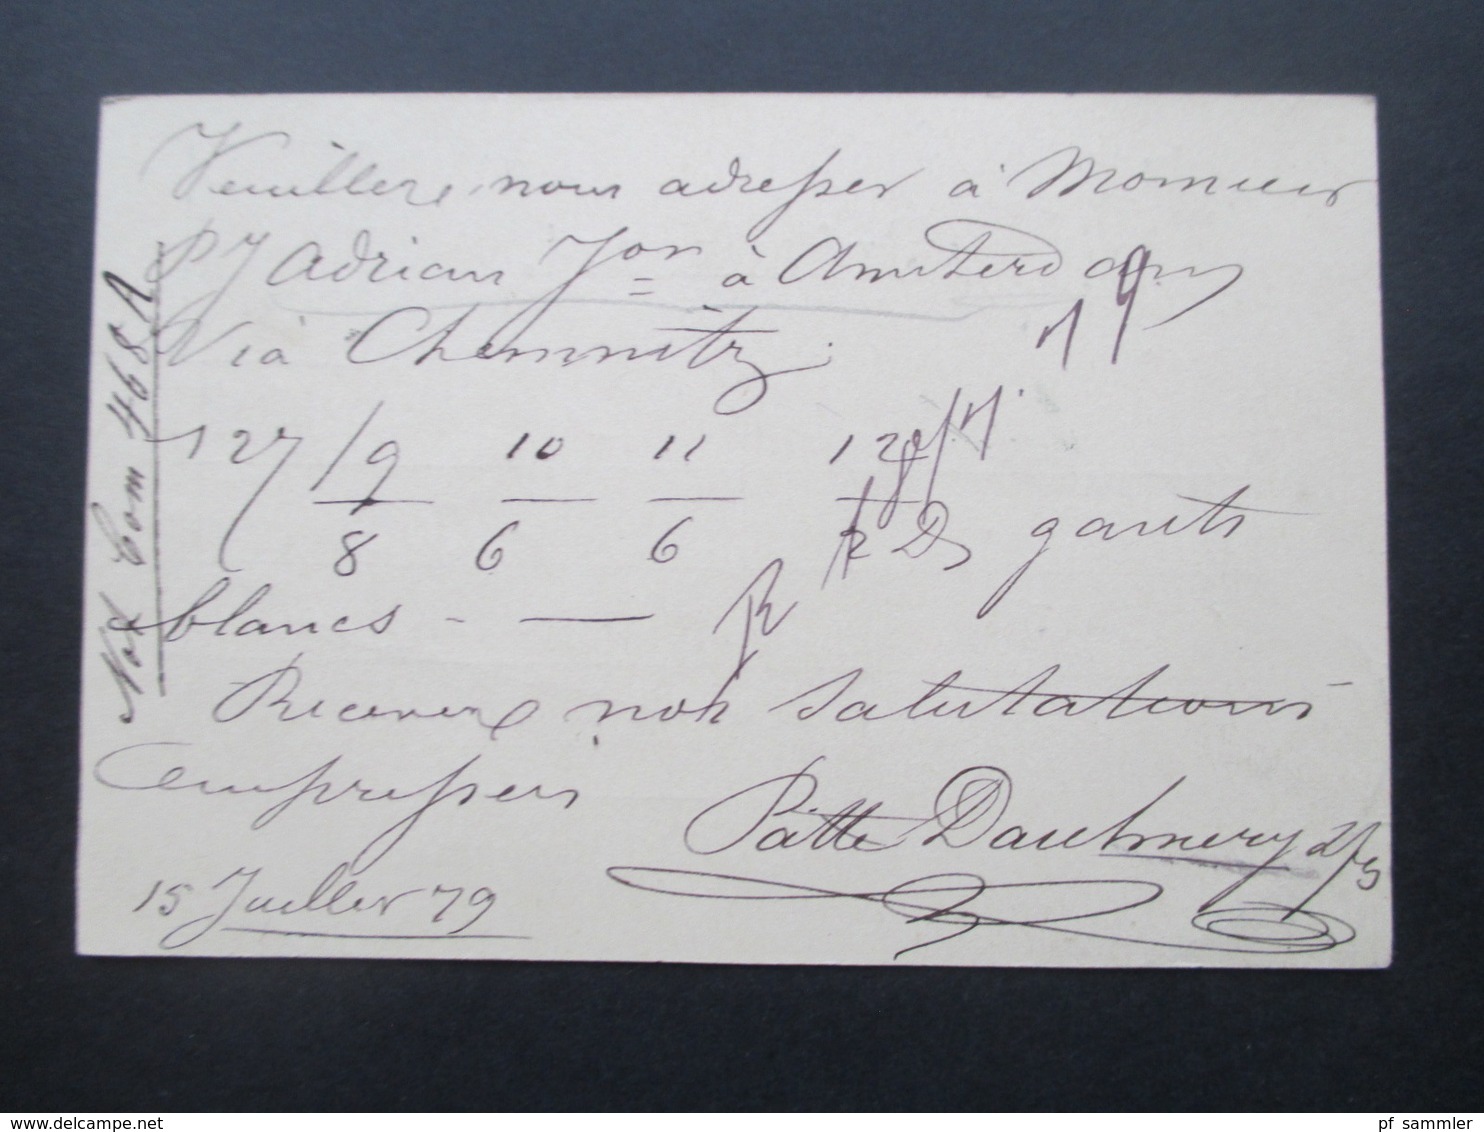 Veuillez, nous adresser à Monsieur
P J Adrian Jor à Amsterdam
Via Chemnitz.
19
127/9 10 11 12
8 6 6 2 Ds gants
blancs - —
Recevez nos salutations
empressées
Patte Dautmery
15 Juillet 79
Not Com 468
delcampe.net
pf_sammler